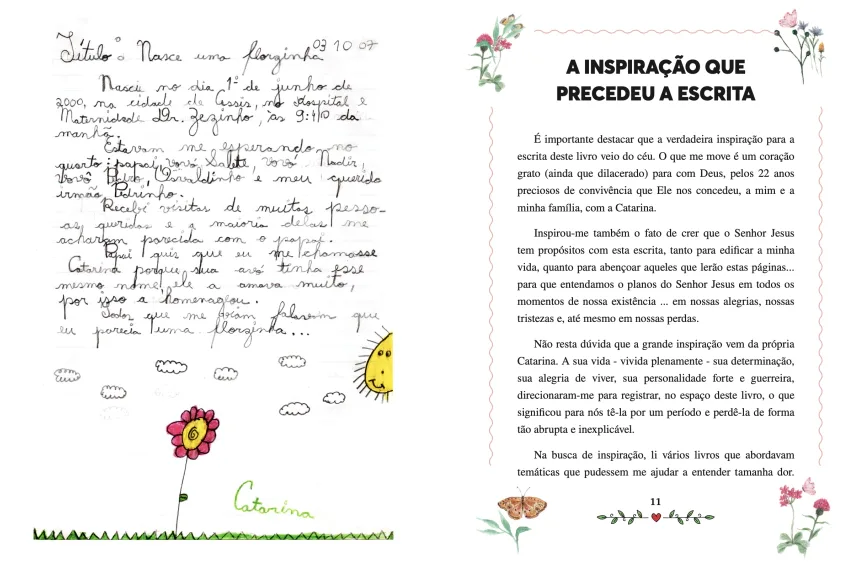 03 10 07
Título: Nasce uma florzinha
Nasci no dia 1º de junho de
2000, na cidade de Assis, no Hospital e
Maternidade Dr. Zezinho, às 9:40 da
manhã.
Estavam me esperando no
quarto: papai, vovó Salete, vovó Nadir,
Vovô Pedro, Osvaldinho e meu querido
irmão Pedrinho.
Recebi visitas de muitas pesso-
as queridas e a maioria delas me
acharam parecida com o papai.
Papai quis que eu me chamasse
Catarina porque sua avó tinha esse
mesmo nome, ele a amava muito,
por isso a homenageou.
Todos que me falaram que
eu parecia uma florzinha...
Catarina
A INSPIRAÇÃO QUE
PRECEDEU A ESCRITA
É importante destacar que a verdadeira inspiração para a
escrita deste livro veio do céu. O que me move é um coração
grato (ainda que dilacerado) para com Deus, pelos 22 anos
preciosos de convivência que Ele nos concedeu, a mim e a
minha família, com a Catarina.
Inspirou-me também o fato de crer que o Senhor Jesus
tem propósitos com esta escrita, tanto para edificar a minha
vida, quanto para abençoar aqueles que lerão estas páginas...
para que entendamos o planos do Senhor Jesus em todos os
momentos de nossa existência ... em nossas alegrias, nossas
tristezas e, até mesmo em nossas perdas.
Não resta dúvida que a grande inspiração vem da própria
Catarina. A sua vida - vivida plenamente - sua determinação,
sua alegria de viver, sua personalidade forte e guerreira,
direcionaram-me para registrar, no espaço deste livro, o que
significou para nós tê-la por um período e perdê-la de forma
tão abrupta e inexplicável.
Na busca de inspiração, li vários livros que abordavam
temáticas que pudessem me ajudar a entender tamanha dor.
11